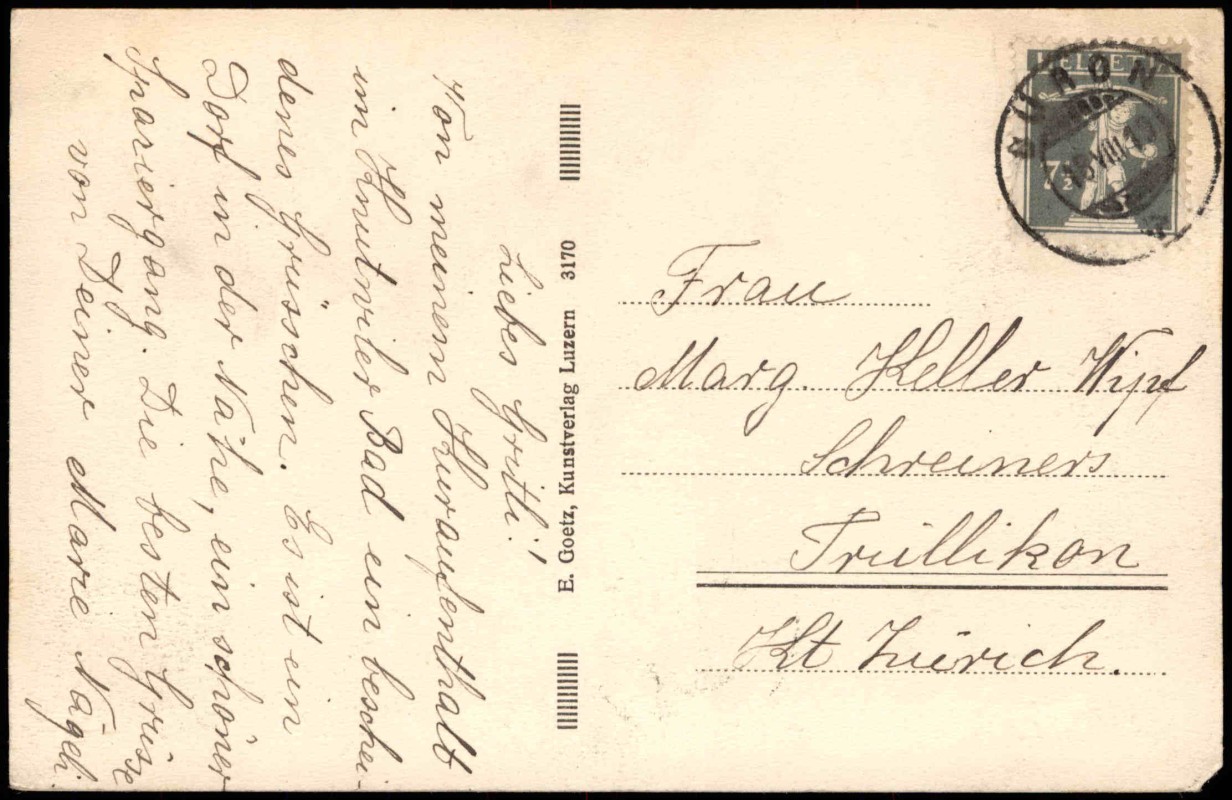 Liebes Gritli!
Von meinem Kuraufenthalt
im Knutwiler Bad ein beschei-
denes Grüsschen. Es ist ein
Dorf in der Nähe, ein schöner
Spaziergang. Die besten Grüsse
von Deiner Marie Nägeli.
E. Goetz, Kunstverlag Luzern 3170
HELVETIA
7½
BÜRON
15.VIII.
Frau
Marg. Keller Wipf
Schreiners
Trüllikon
Kt Zürich.